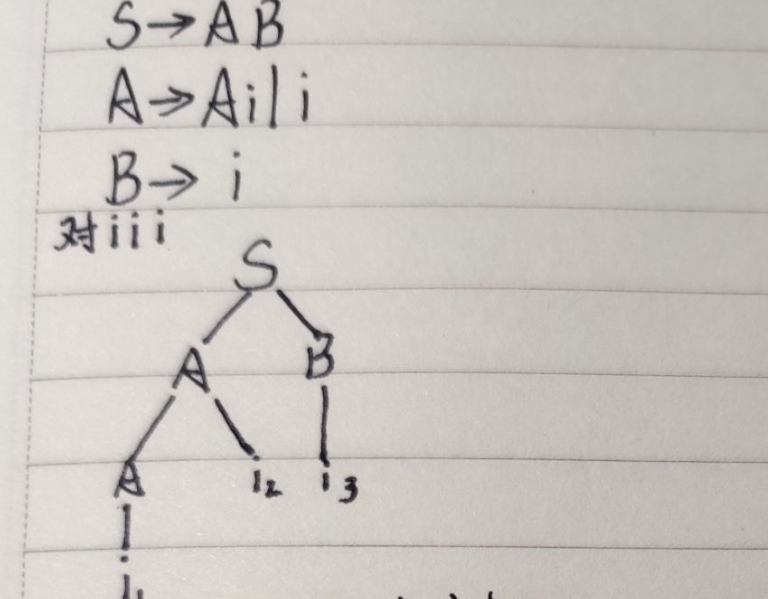 S→AB
A→Ai|i
B→i
对iii
S
A B
A i₂ i₃
i₁